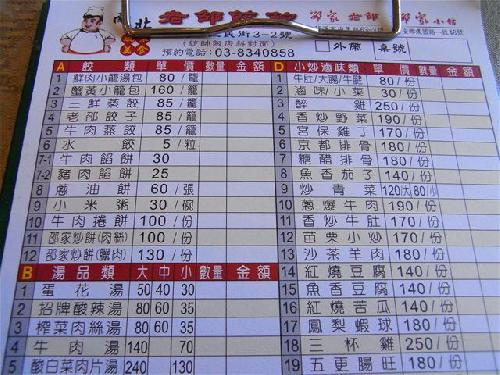 北 老邵餃館 邵家 老邵 邵家小館
民街3-2號
預約電話：03-8340858
外帶 桌號
A 餃類 單價 數量 金額
1 鮮肉/小籠湯包 80/籠
2 蟹黃小籠包 160/籠
3 三鮮蒸餃 85/籠
4 老邵餃子 85/籠
5 牛肉蒸餃 85/籠
6 水餃 5/粒
7-1 牛肉餡餅 30
7-2 豬肉餡餅 25
8 蔥油餅 60/張
9 小米粥 30/碗
10 牛肉捲餅 100/份
11 邵家炒餅(肉絲) 100/份
12 邵家炒餅(蟹肉) 130/份
B 湯品類 大 中 小 數量 金額
1 蛋花湯 50 40 30
2 招牌酸辣湯 80 60 35
3 榨菜肉絲湯 80 60 35
4 牛肉湯 140 70
5 酸白菜肉片湯 240 130
D 小炒滷味類 單價 數量 金額
1 牛肚/大腸/牛腱 80/份
2 滷味/小菜 30/份
3 醉雞 250/份
4 香炒野菜 190/份
5 宮保雞丁 170/份
6 京都排骨 180/份
7 糖醋排骨 180/份
8 魚香茄子 140/份
9 炒青菜 120大 80小
10 蔥爆牛肉 190/份
11 香炒牛肚 170/份
12 芭樂小炒 170/份
13 沙茶羊肉 180/份
14 紅燒豆腐 140/份
15 魚香豆腐 140/份
16 紅燒苦瓜 140/份
17 鳳梨蝦球 180/份
18 三杯雞 /份
19 五更腸旺 180/份